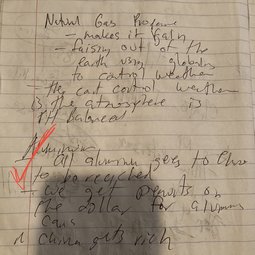 Natural Gas Propane
- makes it Rain
- faising out of the
earth using globaly
to control weather
- the cant control weather
is the atmosphere is
PH Balanced
Aluminum
All alumnum goes to China
to be recycled
- we get penuts on
the dollar for alumnum
Cans
China gets rich